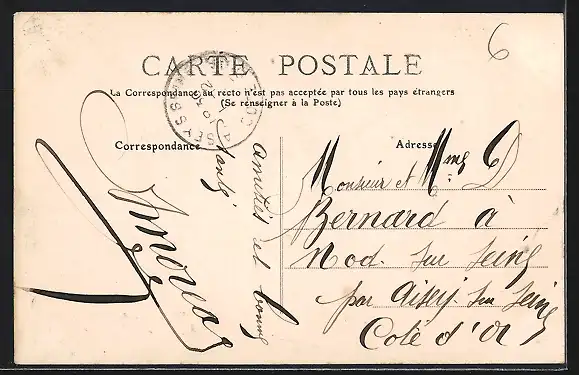 CARTE POSTALE
La Correspondance au recto n'est pas acceptée par tous les pays étrangers
(Se renseigner à la Poste)
Correspondance
Adresse
6
amitiés et bonne
santé
Monsieur et Mme D
Bernard à
Nod sur Seine
par Aisey sur Seine
Cote d'Or